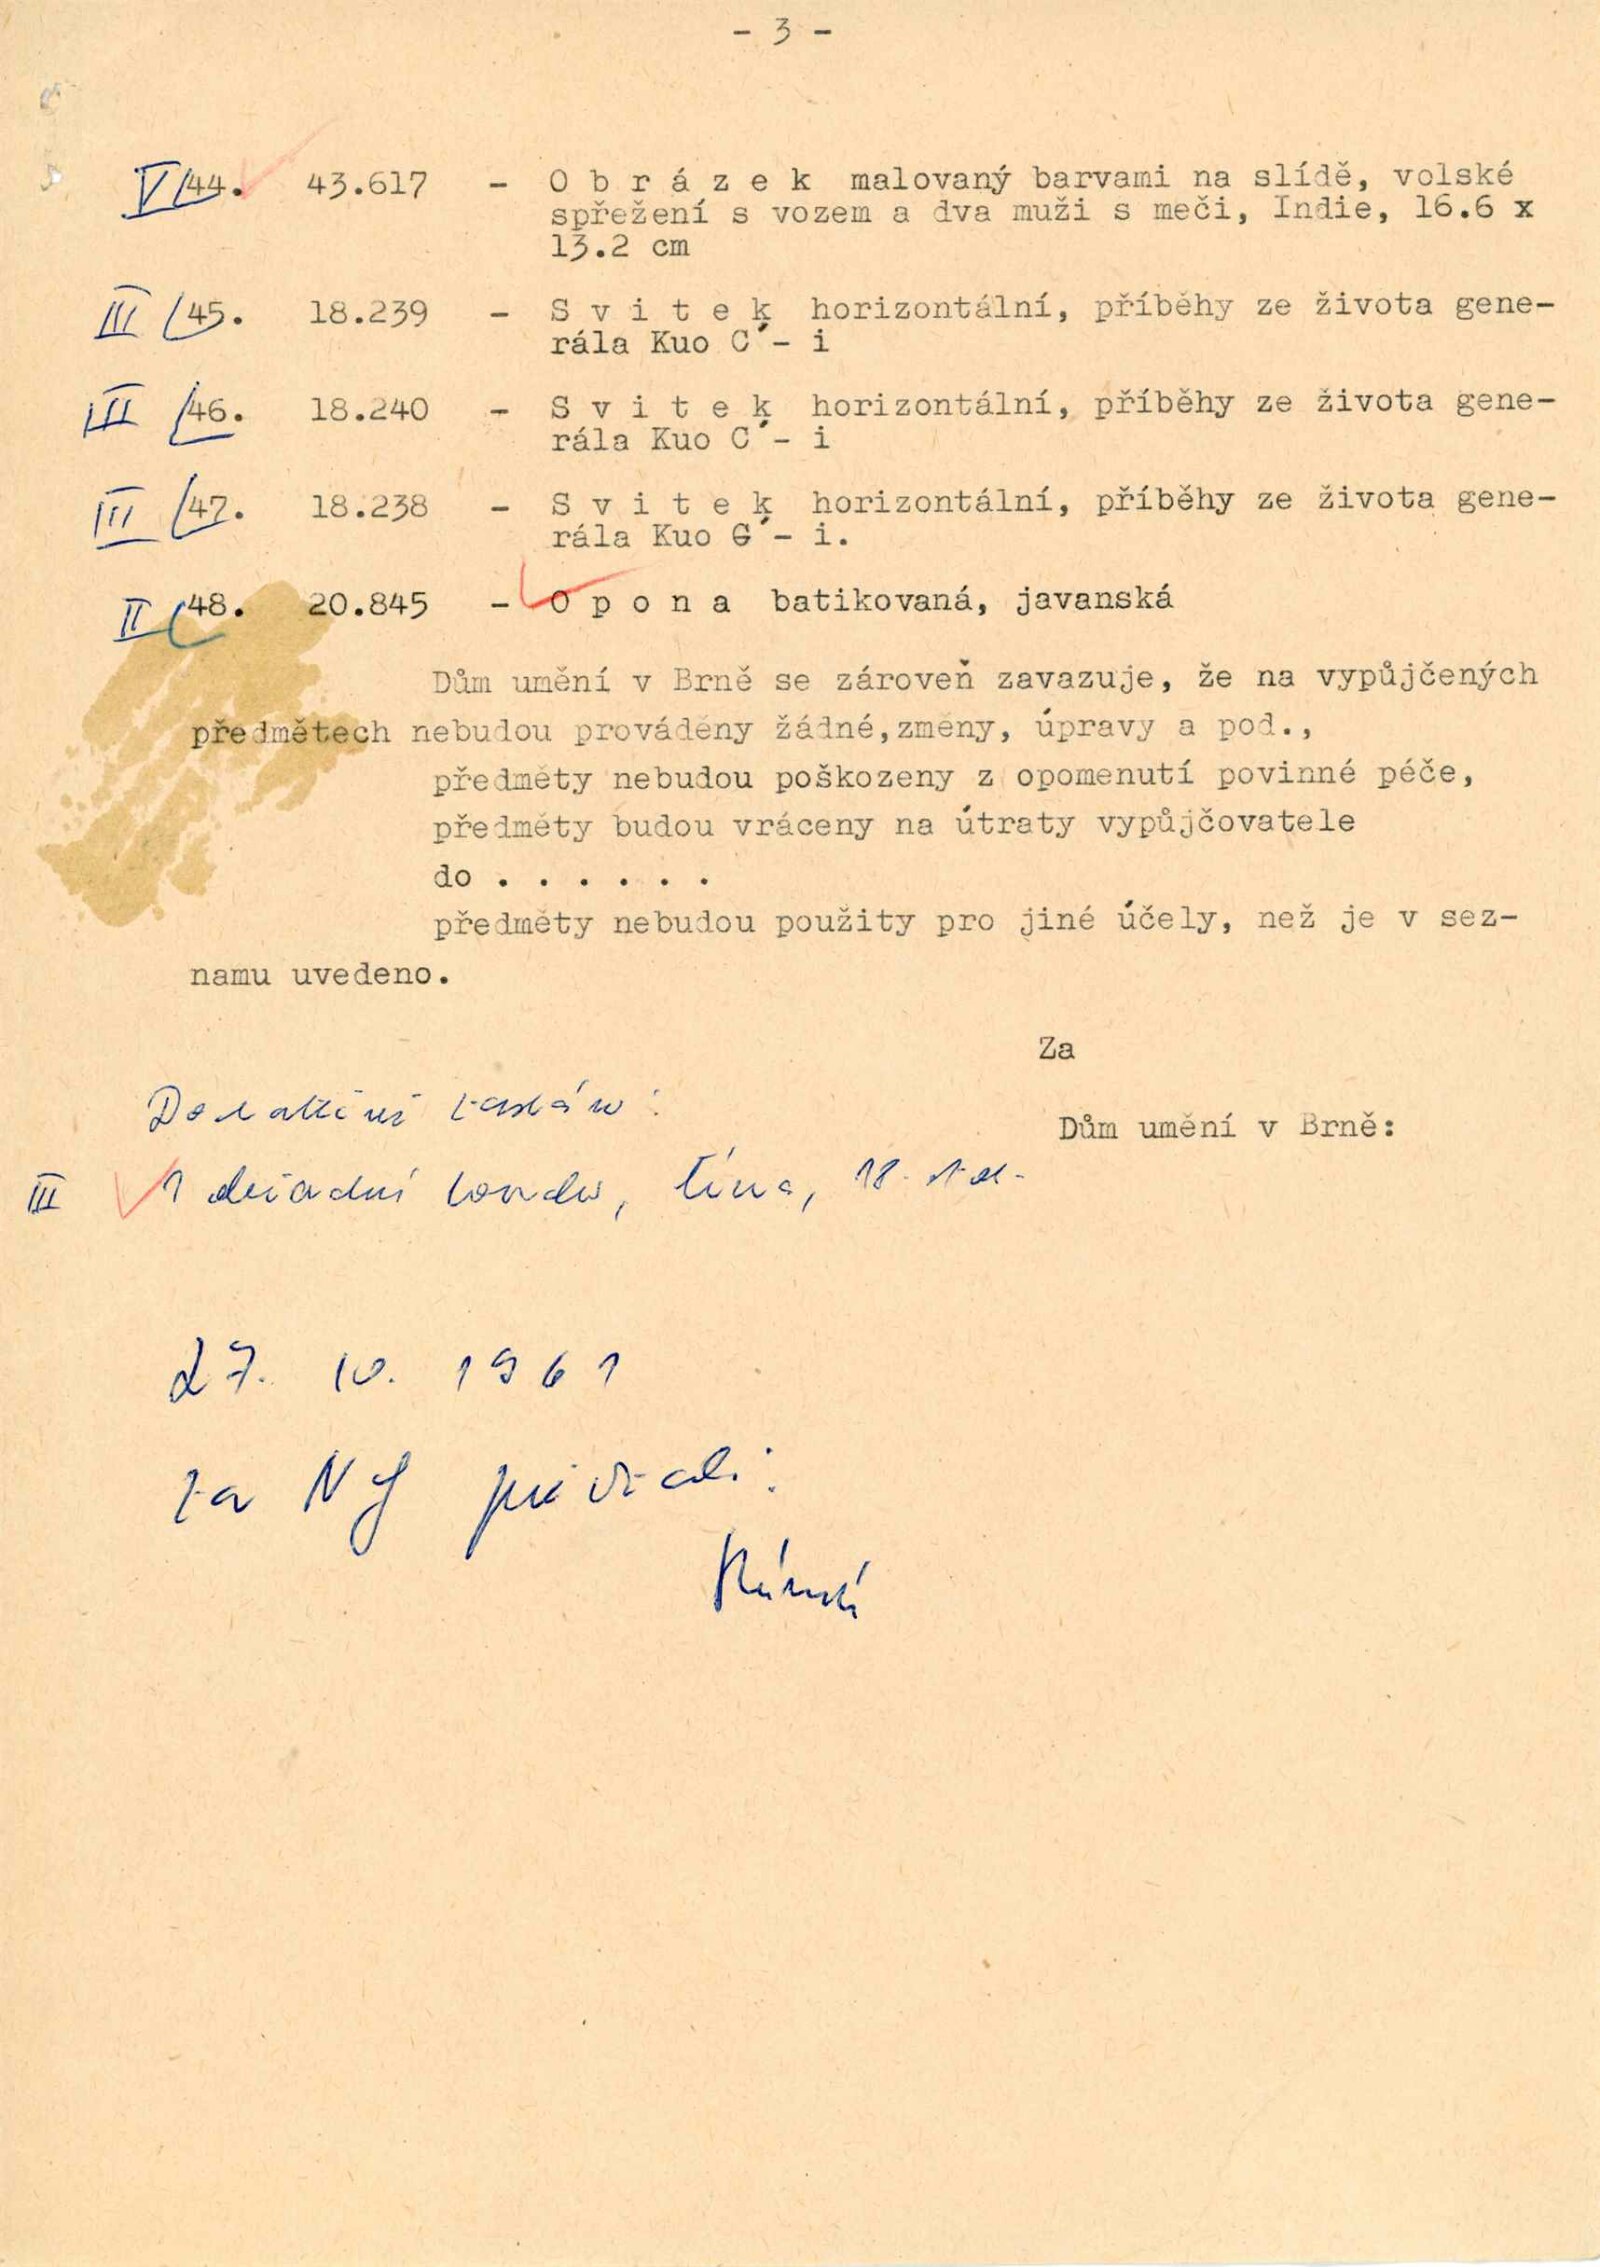 - 3 -
V 44. 43.617 - O b r á z e k malovaný barvami na slídě, volské
spřežení s vozem a dva muži s meči, Indie, 16.6 x
13.2 cm
III 45. 18.239 - S v i t e k horizontální, příběhy ze života gene-
rála Kuo C´- i
III 46. 18.240 - S v i t e k horizontální, příběhy ze života gene-
rála Kuo C´- i
III 47. 18.238 - S v i t e k horizontální, příběhy ze života gene-
rála Kuo C´- i.
II 48. 20.845 - O p o n a batikovaná, javanská
Dům umění v Brně se zároveň zavazuje, že na vypůjčených
předmětech nebudou prováděny žádné,změny, úpravy a pod.,
předměty nebudou poškozeny z opomenutí povinné péče,
předměty budou vráceny na útraty vypůjčovatele
do . . . . . .
předměty nebudou použity pro jiné účely, než je v sez-
namu uvedeno.
Za
Dům umění v Brně:
III 1 divadní loutka, Čína, 18. stol.
27. 10. 1961
za NG převzal: